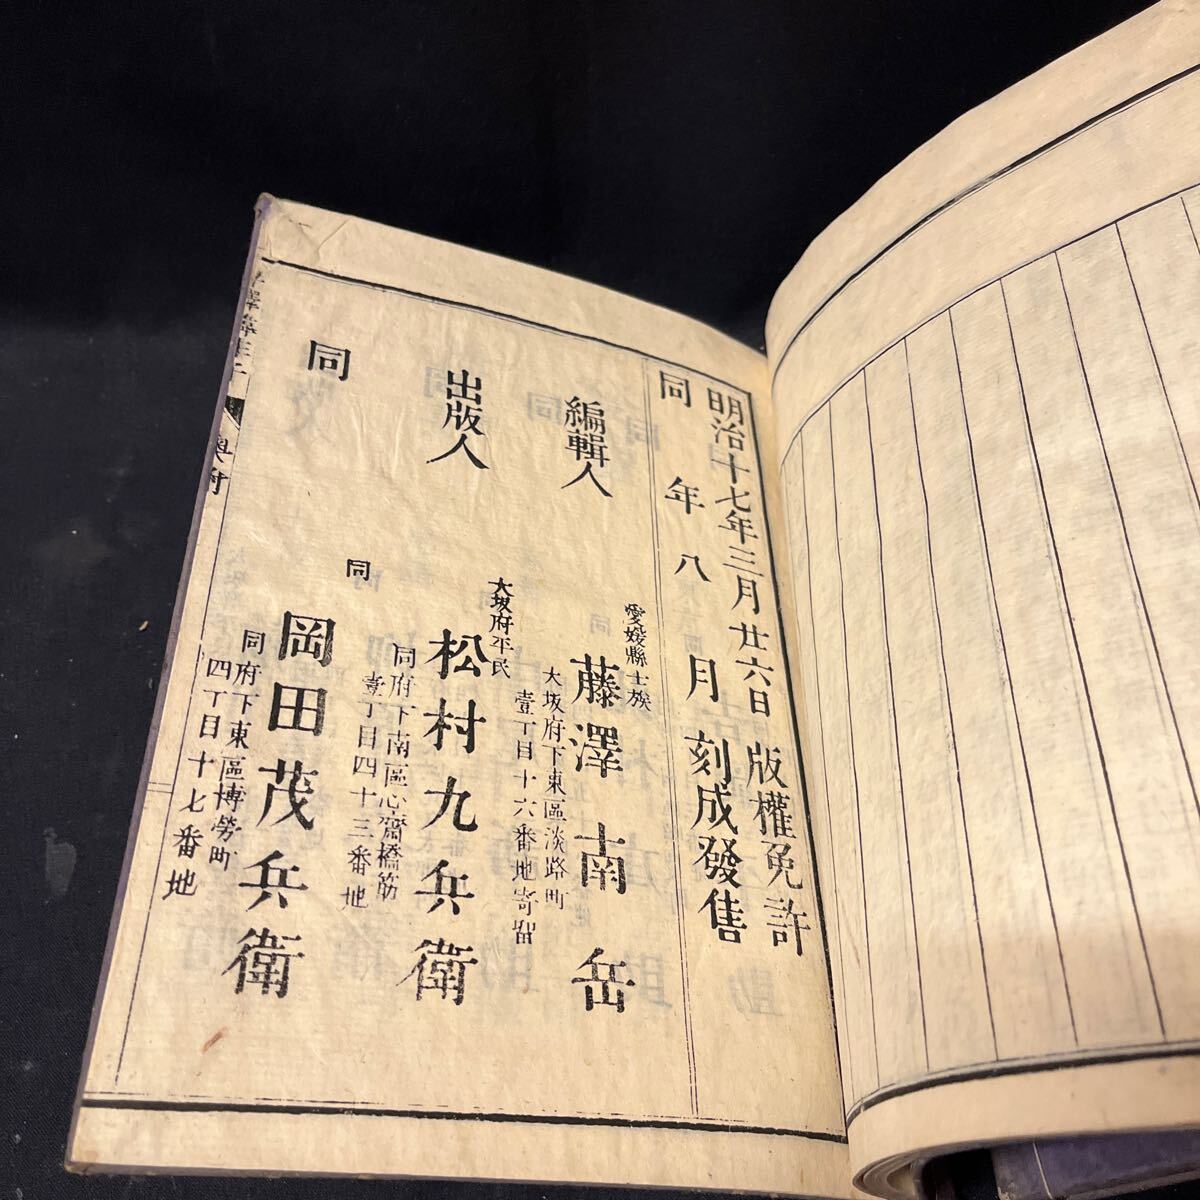 明治十七年三月廿六日版權免許
同年八月刻成發售
編輯人
愛媛縣士族
藤澤南岳
大坂府下東區淡路町
壹丁目十六番地寄留
出版人
大坂府平民
松村九兵衛
同府下南區心齋橋筋
壹丁目四十三番地
同
同
岡田茂兵衛
同府下東區博勞町
四丁目十七番地
奥付